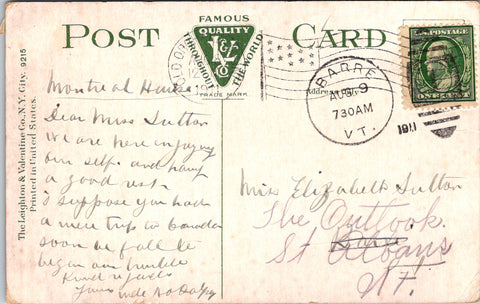 POST CARD
FAMOUS
QUALITY
THROUGHOUT THE WORLD
L&V Co
TRADE MARK
U.S. POSTAGE
ONE CENT
BARRE
AUG 9
730AM
VT.
1911
The Leighton & Valentine Co., N.Y. City.
Printed in United States.
9215
Montreal House
Dear Miss Sutton
We are here enjoying
our self and having
a good rest
I suppose you had
a nice trip to
soon be fall
began our
Kind regards
Yours
Miss Elizabeth Sutton
The Outlook.
St Albans
Vt.